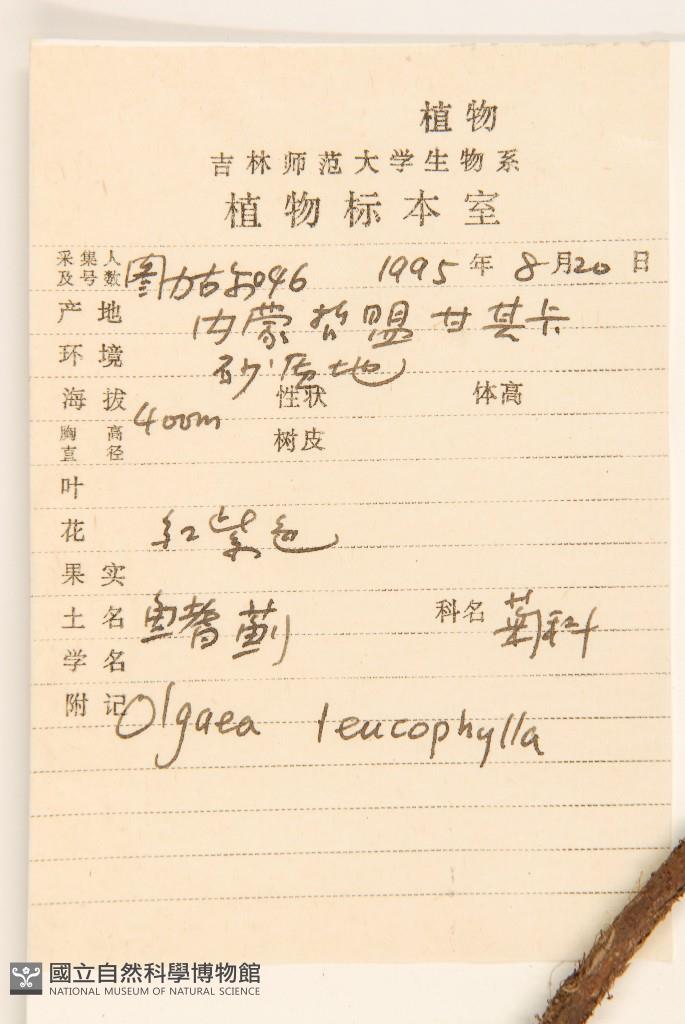 植物
吉林师范大学生物系
植物标本室
采集人及号数 图力古尔046 1995年8月20日
产地 内蒙哲盟甘其卡
环境 砂质地
海拔 400m 性状 体高
胸高直径 树皮
叶
花 红紫色
果实
土名 鱼鳍蓟 科名 菊科
学名
附记 Olgaea leucophylla
國立自然科學博物館
NATIONAL MUSEUM OF NATURAL SCIENCE